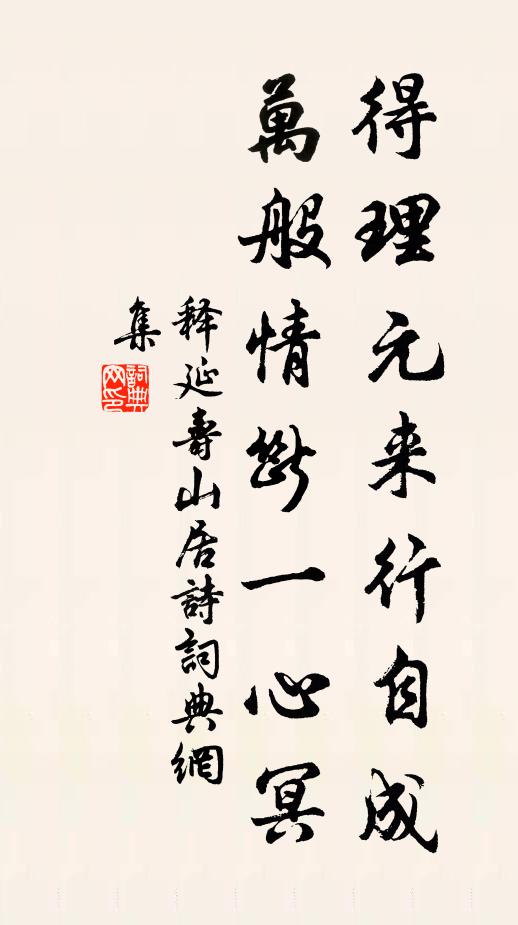 得理元来行自成
萬般情斷一心冥
释延壽山居詩詞典網
集
詞典网印